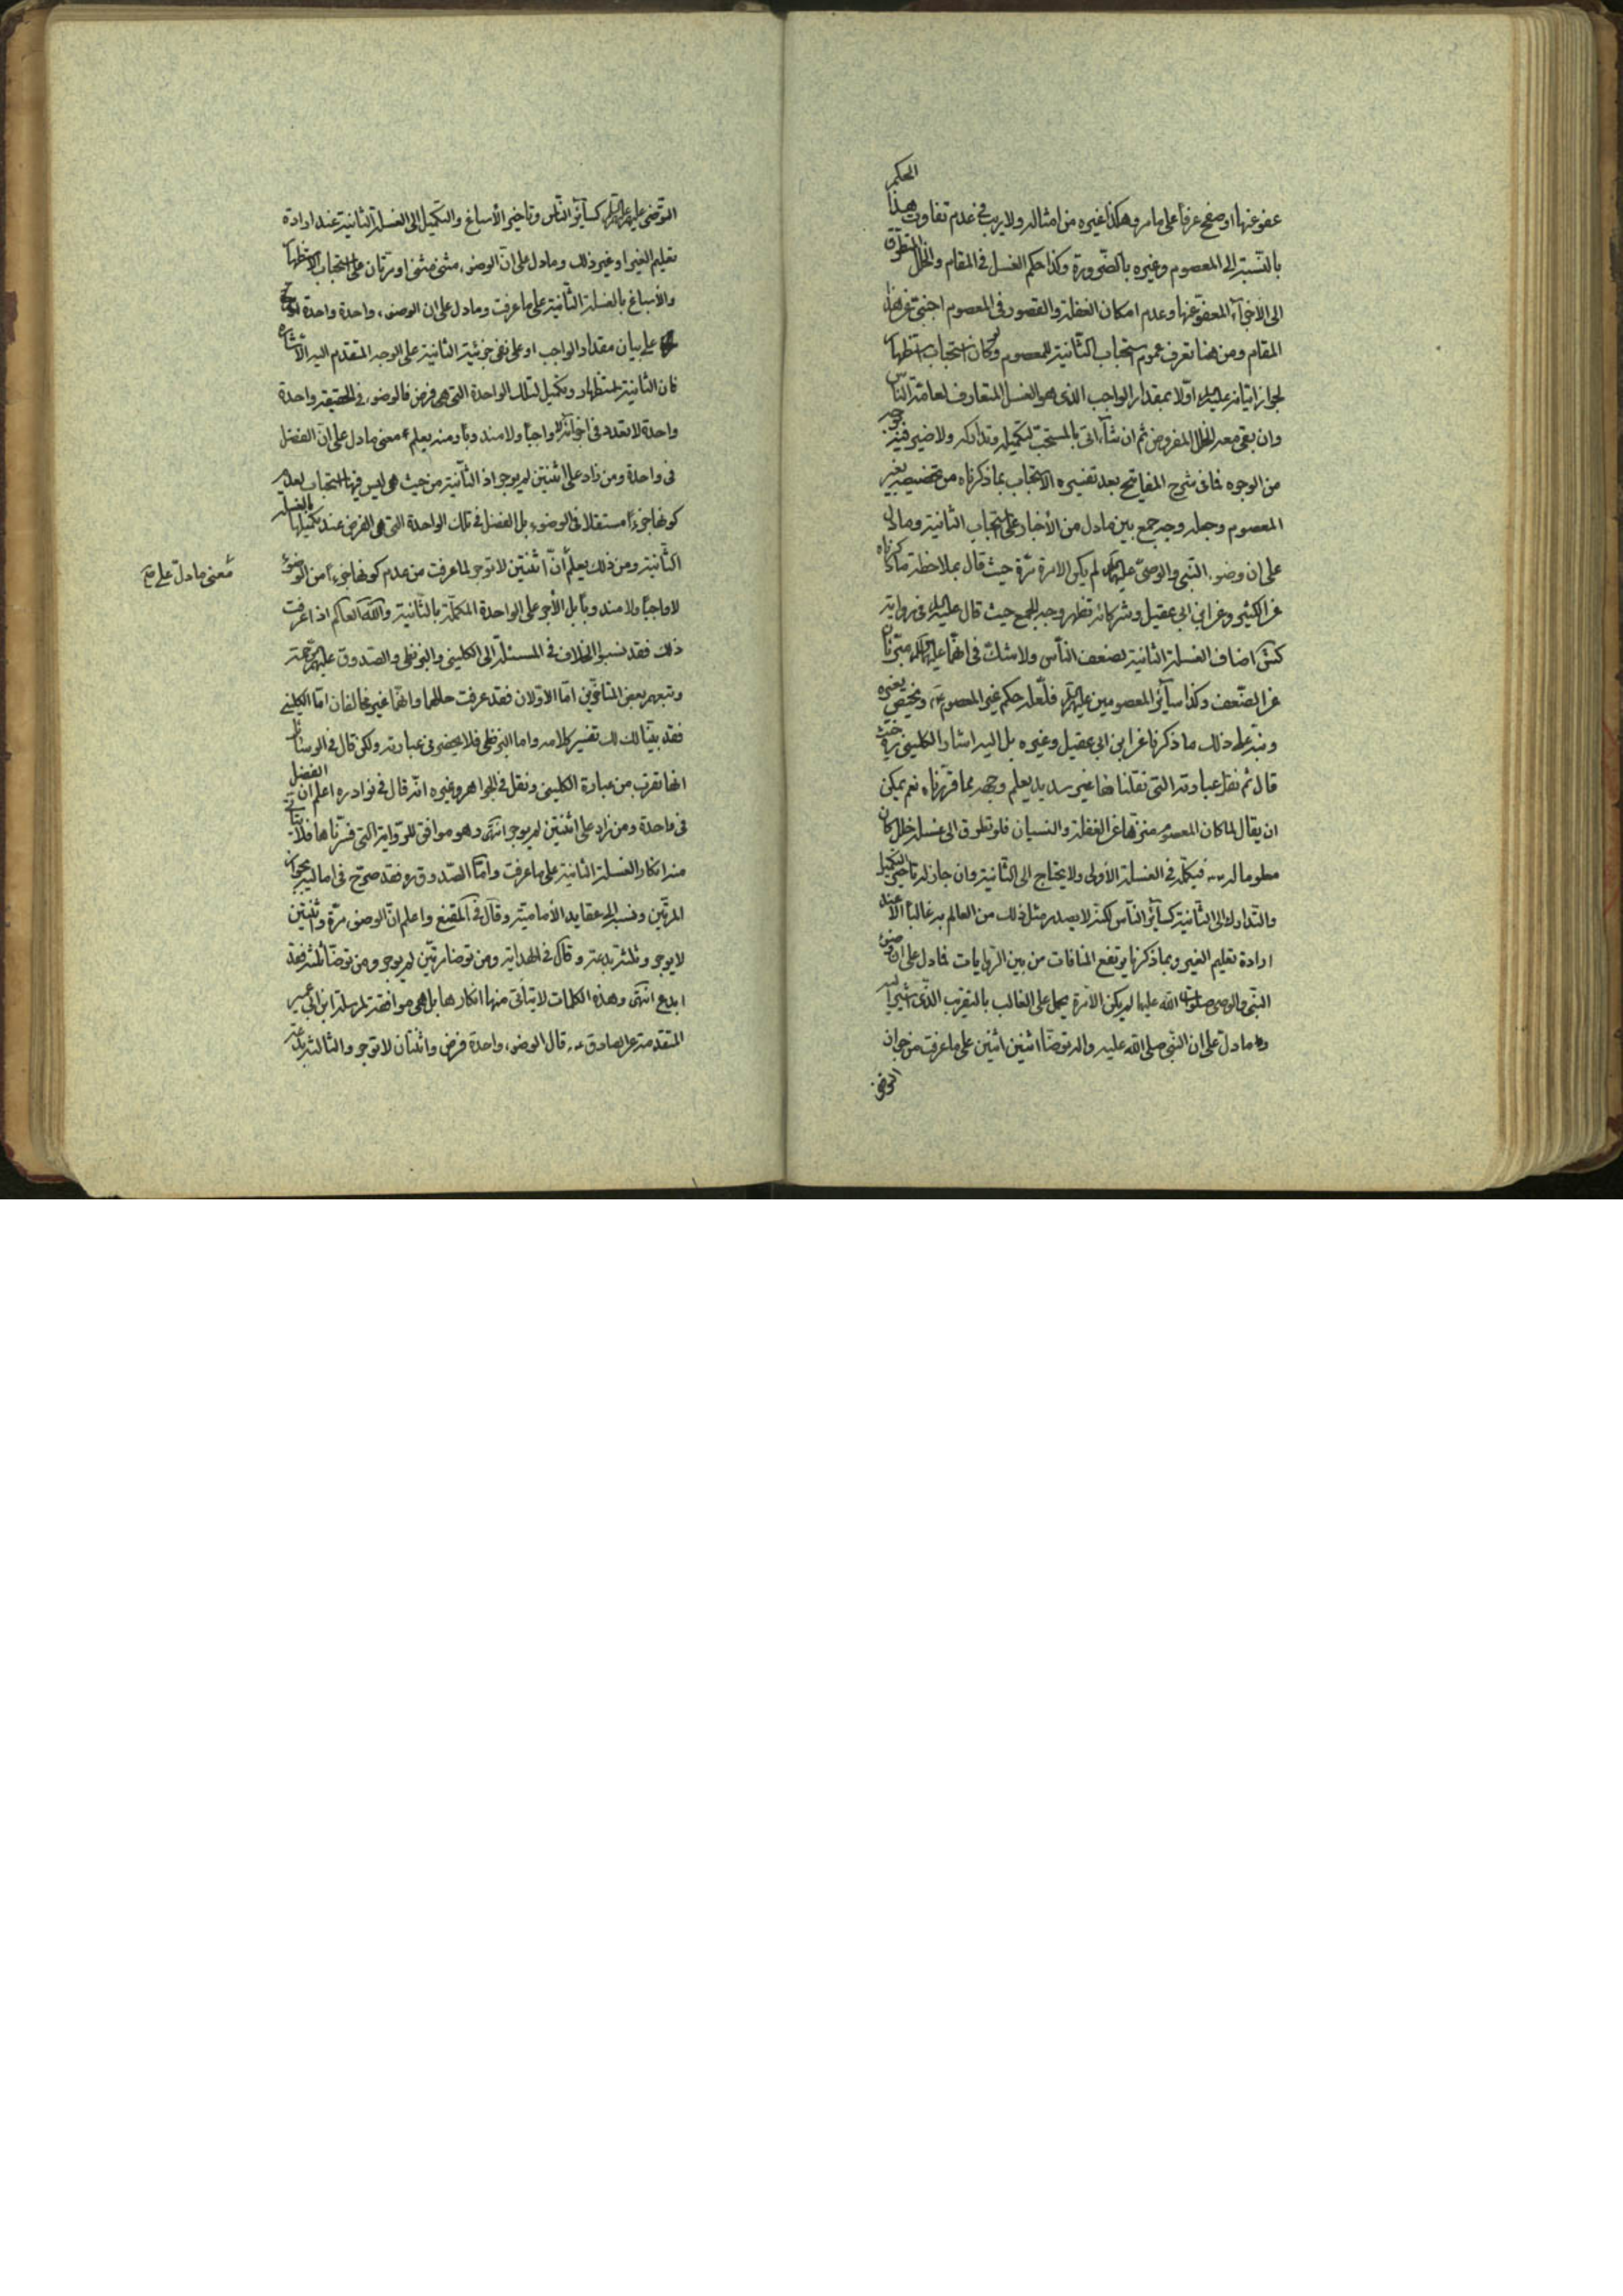 عفو عنها او صفح عرفا على ما مر وهكذا غيره من امثاله ولا ريب في عدم تفاوت هذا الحكم
بالنسبة الى المعصوم وغيره بالضرورة وكذا حكم الغسل في المقام والخلل المتطرق
الى الأجزاء المعفو عنها وعدم امكان الغفلة والقصور في المعصوم اجنبي عن هذا
المقام ومن هنا تعرف عموم استحباب الثانية للمعصوم وكان استحباب استظهارا
لجواز اتيانه عليه السلام اولا بمقدار الواجب الذي هو الغسل المتعارف لعامة الناس
وان بقي معه الخلل المفروض ثم ان شاء اتى بالمستحب لتكميله وتداركه ولا ضير فيه بوجه
من الوجوه فما في شرح المفاتيح بعد تفسيره الاستحباب بما ذكرناه من تخصيصه بغير
المعصوم وجعله وجه جمع بين ما دل من الأخبار على استحباب الثانية وما دل
على ان وضوء النبي والوصي عليهما السلام لم يكن الا مرة مرة حيث قال بملاحظة ما ذكرناه
عن الكليني وعن ابن ابي عقيل وشركائه تظهر وجه الجمع حيث قال عليه السلام في رواية
كش اضاف الغسلة الثانية لضعف الناس ولا شك في انهما عليهما السلام مبرئان
عن الضعف وكذا سائر المعصومين عليهم السلام فلعله حكم غير المعصوم ع ويختص بغيره
ونبه على ذلك ما ذكرنا عن ابن ابي عقيل وغيره بل اليه اشار الكليني ره حيث
قال ثم نقل عبارته التي نقلناها غير سديد يعلم وجهه مما قررناه نعم يمكن
ان يقال لما كان المعصوم منزها عن الغفلة والنسيان فلو تطرق الى غسله خلل كان
معلوما له فيكمله في الغسلة الأولى ولا يحتاج الى الثانية وان جاز له تاخير التكميل
والتدارك الى الثانية كسائر الناس لكنه لا يصدر مثل ذلك من العالم به غالبا الا عند
ارادة تعليم الغير وبما ذكرنا يرتفع المنافات من بين الروايات فما دل على ان وضوء
النبي والوصي صلوات الله عليهما لم يكن الا مرة يحمل على الغالب بالتقريب الذي اشير اليه
وما دل على ان النبي صلى الله عليه واله توضأ اثنين اثنين على ما عرفت من جواز
التوضى
التوضى عليهم السلام كسائر الناس وتاخير الأسباغ والتكميل الى الغسلة الثانية عند ارادة
تعليم الغير او غير ذلك وما دل على ان الوضوء مثنى مثنى او مرتان على استحباب الاستظهار
والأسباغ بالغسلة الثانية على ما عرفت وما دل على ان الوضوء واحدة واحدة
على بيان مقدار الواجب او على نفي جزئية الثانية على الوجه المتقدم اليه الاشارة
فان الثانية استظهار وتكميل لتلك الواحدة التي هي فرض فالوضوء في الحقيقة واحدة
واحدة لا تعدد في اجزائه لا واجبا ولا مندوبا ومنه يعلم معنى ما دل على ان الفضل
في واحدة ومن زاد على اثنتين لم يوجر اذ الثانية من حيث هي ليس فيها استحباب لعدم
كونها جزءا مستقلا في الوضوء بل الفضل في تلك الواحدة التي هي الفرض عند تكميلها بالغسلة
الثانية ومن ذلك يعلم ان اثنتين لا توجر لما عرفت من عدم كونها جزءا من الوضوء
معنى ما دل على صح
لا واجبا ولا مندوبا بل الأجر على الواحدة المكملة بالثانية والله العالم اذا عرفت
ذلك فقد نسبوا الخلاف في المسئلة الى الكليني والبزنطي والصدوق عليهم الرحمة
وتبعهم بعض المتأخرين اما الأولان فقد عرفت حالهما وانهما غير مخالفان اما الكليني
فقد بينا لك تفسير كلامه واما البزنطي فلا يحضرني عبارته ولكن قال في الوسائل
انها تقرب من عبارة الكليني ونقل في الجواهر وغيره انه قال في نوادره اعلم ان الفضل
في واحدة ومن زاد على اثنتين لم يوجر انتهى وهو موافق للرواية التي فسرناها فلا يتأتى
منه انكار الغسلة الثانية على ما عرفت واما الصدوق ره فقد صرح في اماليه بجواز
المرتين ونسبه الى عقايد الأمامية وقال في المقنع واعلم ان الوضوء مرة واثنتين
لا يوجر وثلثة بدعة وقال في الهداية ومن توضأ مرتين لم يوجر ومن توضأ ثلثا فقد
ابدع انتهى وهذه الكلمات لا يتأتى منها انكارها بل هي موافقة لمرسلة ابن ابي عمير
المتقدمة عن الصادق ع قال الوضوء واحدة فرض واثنتان لا توجر والثالثة بدعة